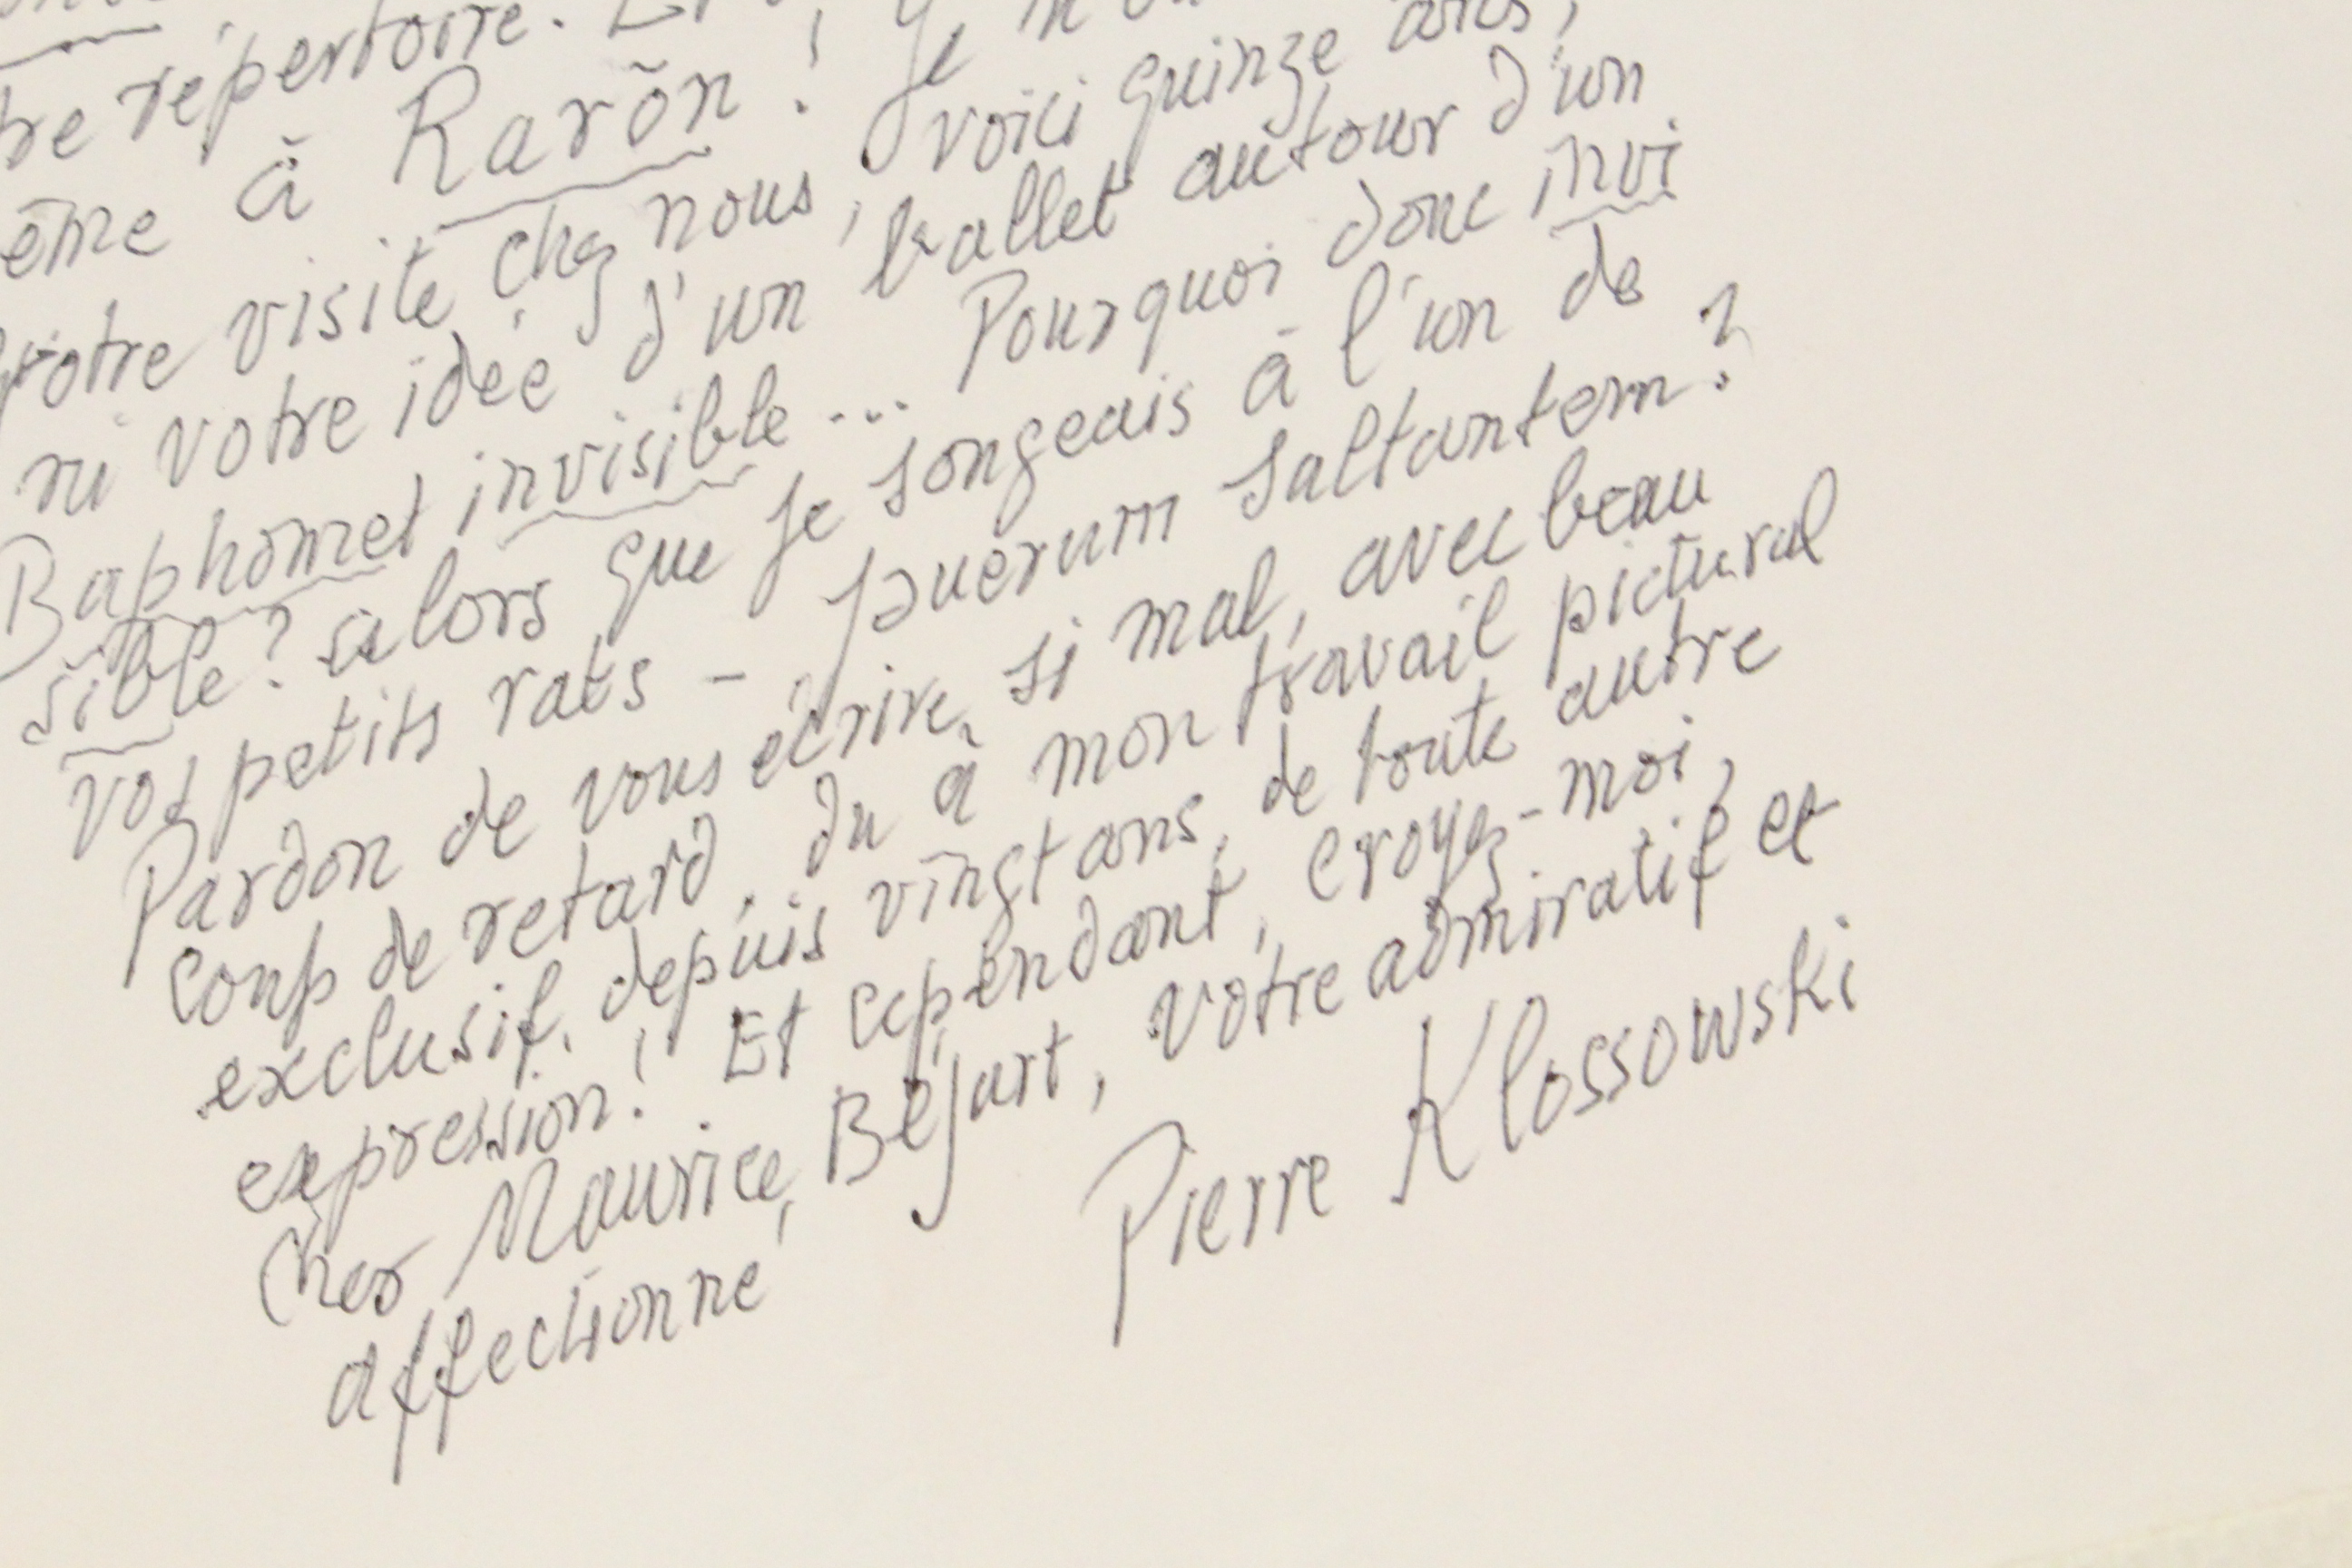 répertoire.
à Rarõn ! Je
votre visite chez nous, voici quinze ans,
ni votre idée d'un ballet autour d'un
Baphomet invisible... Pourquoi donc invi
sible? alors que je songeais à l'un de
vos petits rats - puerum saltantem?
Pardon de vous écrire, si mal, avec beau
coup de retard, du à mon travail pictural
exclusif, depuis vingt ans, de toute autre
expression! Et cependant, croyez-moi,
Cher Maurice Béjart, votre admiratif et
affectionné
Pierre Klossowski